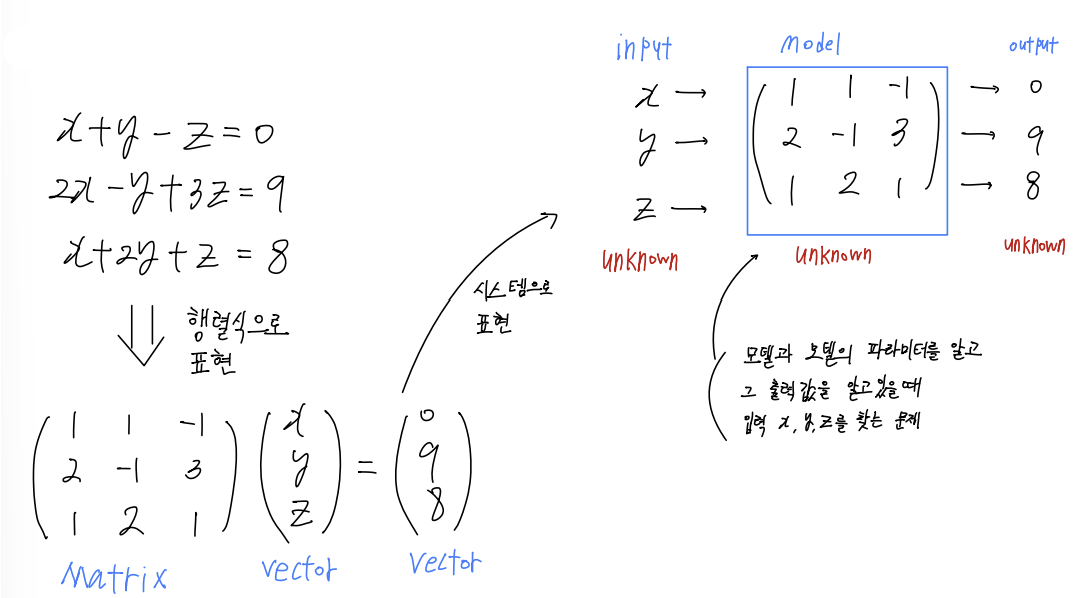 x+y-z=0
2x-y+3z=9
x+2y+z=8
행렬식으로
표현
1 1 -1
2 -1 3
1 2 1
x
y
z
=
0
9
8
Matrix
vector
vector
시스템으로
표현
input
model
output
x → 1 1 -1 → 0
y → 2 -1 3 → 9
z → 1 2 1 → 8
unknown
unknown
unknown
모델과 모델의 파라미터를 알고
그 출력값을 알고있을때
입력 x, y, z를 찾는 문제